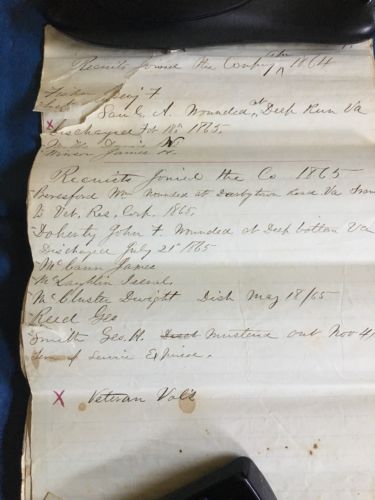 Recruits joined the Company 1864
Benj F.
Saml A. Wounded at Deep Run Va
X Discharged Feb 18th 1865.
James
Recruits Joined the Co 1865
Beresford Wm Wounded at Darbytown Road Va Trans
B Vet. Res. Corp. 1865.
Doherty John F. Wounded at Deep bottom Va
Discharged July 21st 1865
McCann James
McLaughlin
McCluster Dwight Dish May 18/65
Reed Geo
Smith Geo. R. Musterd out Nov 4
Term of Service Expired.
X Veteran Vols